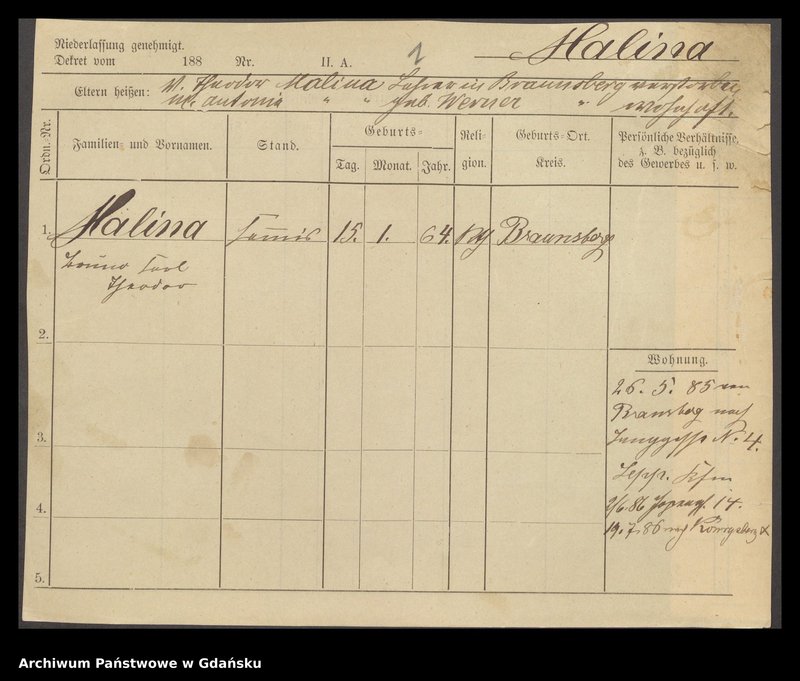 Niederlassung genehmigt.
Dekret vom 188 Nr. II. A. 1 Malina
Eltern heißen: V. Theodor Malina Lehrer in Braunsberg verstorben
M. Antonie " " geb. Werner " wohnhaft.
Ordn.-Nr. Familien- und Vornamen. Stand. Geburts- Tag. Monat. Jahr. Religion. Geburts-Ort. Kreis. Persönliche Verhältnisse, z. B. bezüglich des Gewerbes u. s. w.
1. Malina Commis 15. 1. 64. Braunsberg
Bruno Carl
Theodor
2.
Wohnung.
26. 5. 85 von
Braunsberg nach
3.
N. 4.
4.
2/6.86 14.
19.7.86 nach Königsberg
5.
Archiwum Państwowe w Gdańsku